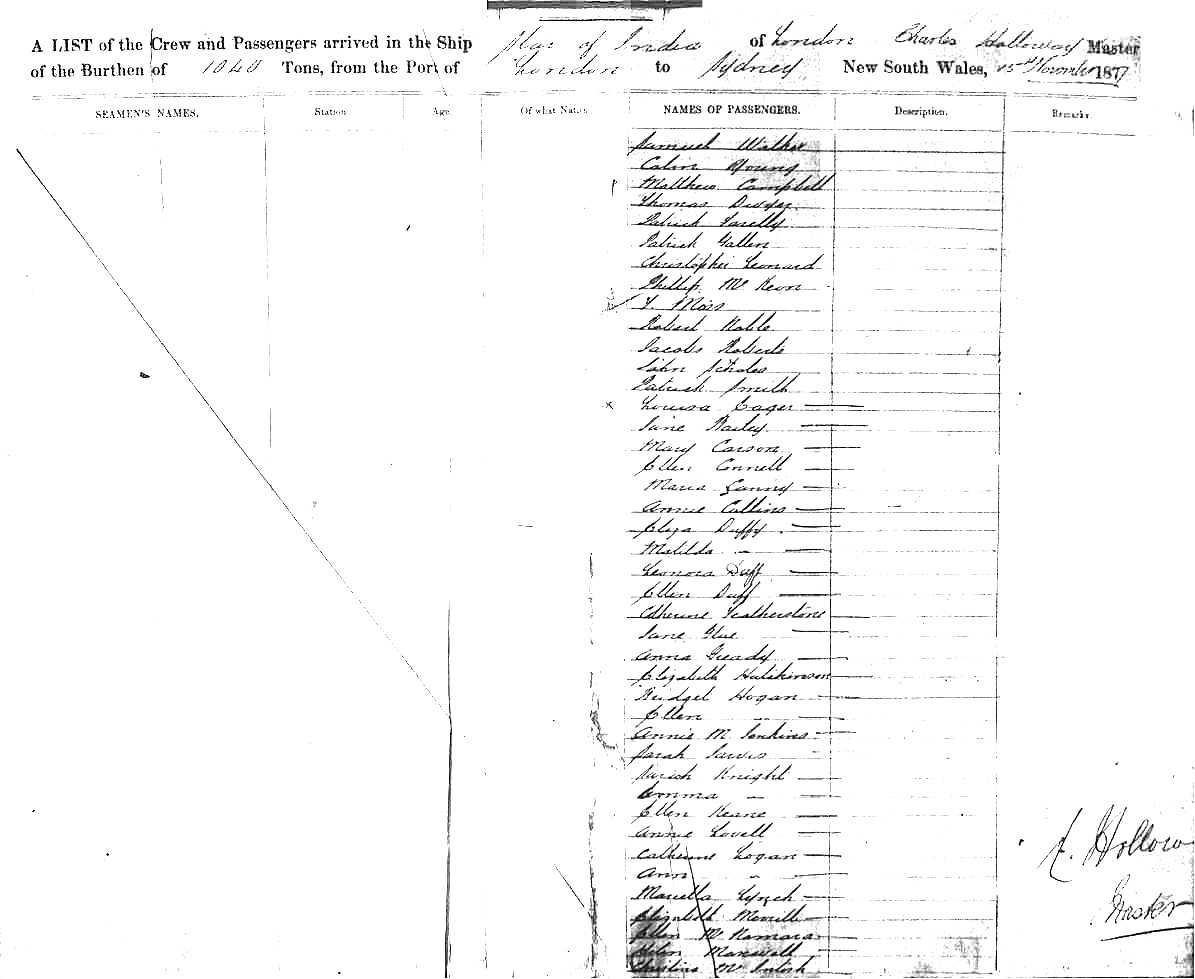 A LIST of the Crew and Passengers arrived in the Ship Star of India of London Charles Holloway Master
of the Burthen of 1040 Tons, from the Port of London to Sydney New South Wales, 15th November 1877
SEAMEN'S NAMES. Station Age Of what Nation NAMES OF PASSENGERS. Description. Remarks
Samuel Walker
Calvin Young
Matthew Campbell
Thomas
Patrick Farelly
Patrick Gallen
Christopher Leonard
Phillip McKeon
Moss
Robert Noble
Jacob Roberts
John Scholes
Patrick Smith
Louisa Eager
Jane Bailey
Mary Carson
Ellen Connell
Maria
Annie Collins
Eliza Duffy
Matilda -
Leonora Duff
Ellen Duff
Catherine Featherstone
Jane Glue
Anna Gready
Elizabeth Hutchinson
Bridget Hogan
Ellen
Annie M Jenkins
Sarah Jarvis
Sarah Knight
Emma -
Ellen Keane
Annie Lovell
Catherine Logan
Ann "
Lynch
Elizabeth Merrill
Ellen McNamara
Helen Maxwell
Christina McIntosh
C. Hollow
Master